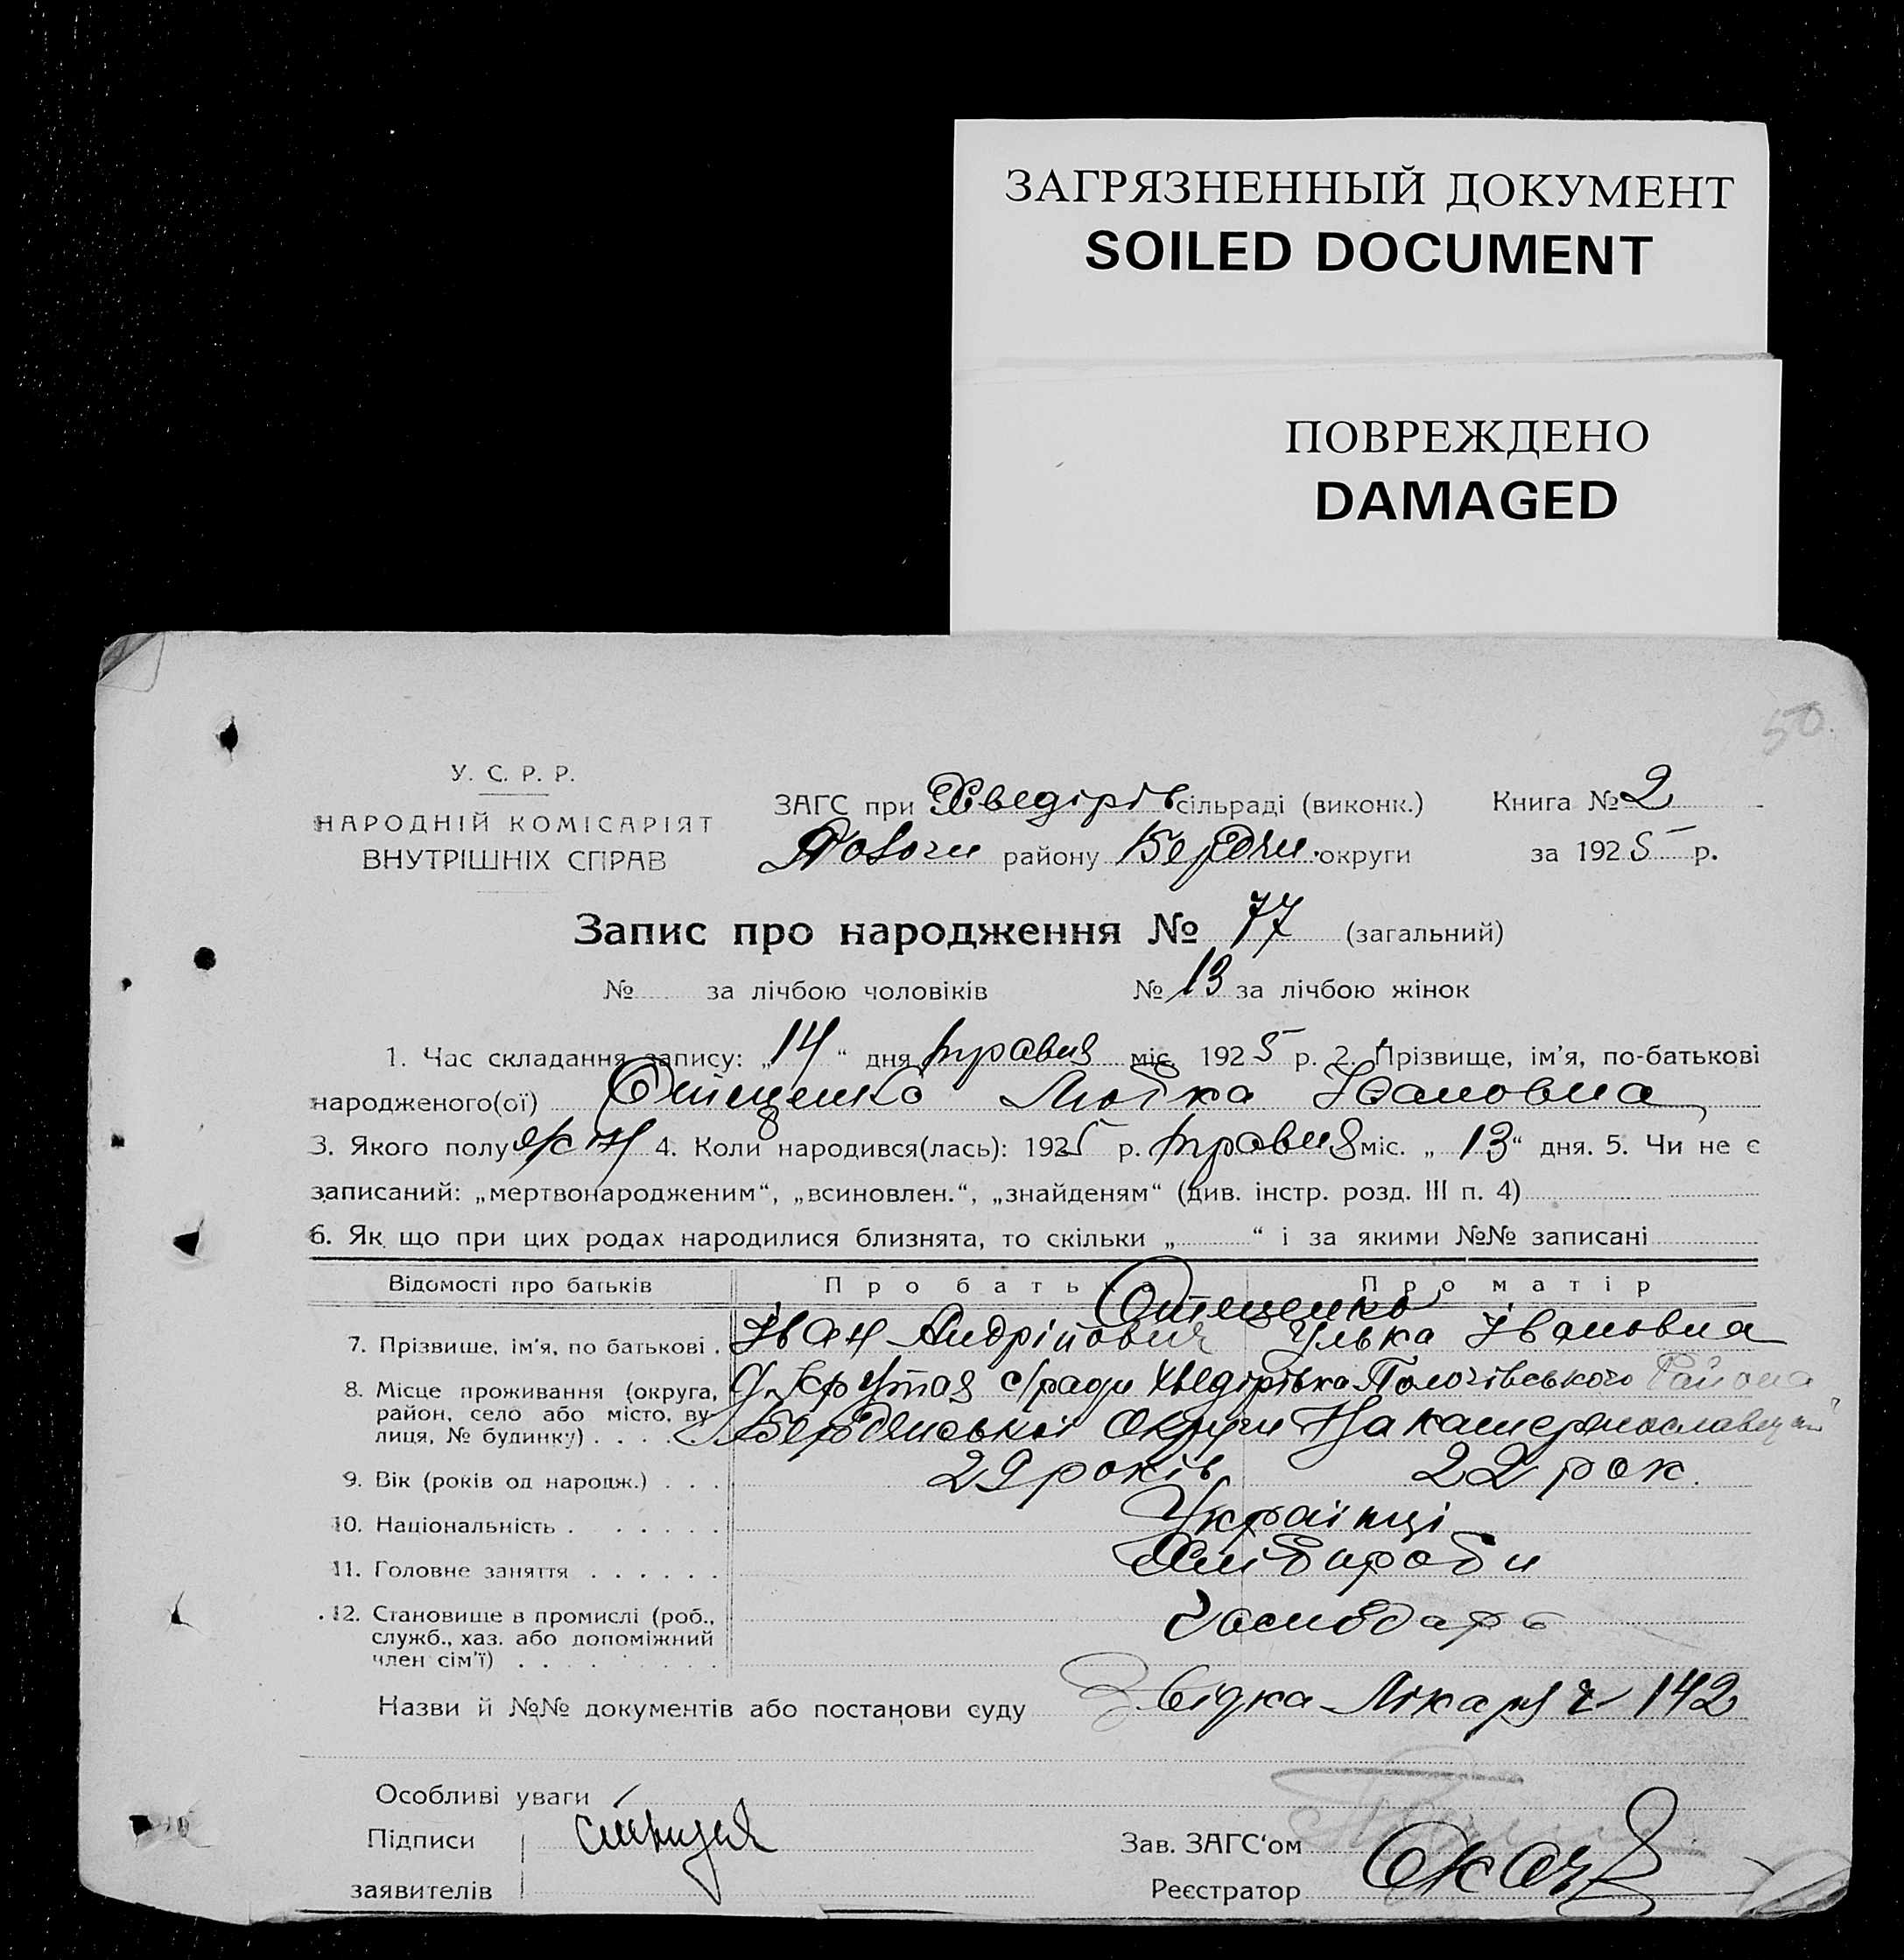 ЗАГРЯЗНЕННЫЙ ДОКУМЕНТ
SOILED DOCUMENT
ПОВРЕЖДЕНО
DAMAGED
50.
У. С. Р. Р.
НАРОДНІЙ КОМІСАРІЯТ
ВНУТРІШНІХ СПРАВ
ЗАГС при Хведірів сільраді (виконк.) Книга № 2
району Бердян. округи за 1925 р.
Запис про народження № 77 (загальний)
№ за лічбою чоловіків № 13 за лічбою жінок
1. Час складання запису: „14“ дня травня міс. 1925 р. 2. Прізвище, ім'я, по-батькові
народженого(ої) Любка Івановна
3. Якого полу жін 4. Коли народився(лась): 1925 р. травня міс. „13“ дня. 5. Чи не є
записаний: „мертвонародженим“, „всиновлен.“, „знайденям“ (див. інстр. розд. III п. 4)
6. Як що при цих родах народилися близнята, то скільки „ “ і за якими №№ записані
Відомості про батьків Про батька Про матір
7. Прізвише, ім'я, по батькові . Іван Андрійович Улька Івановна
8. Місце проживання (округа, с/ради Хведірівка Пологівського Района
район, село або місто, ву-
лиця, № будинку) . . . . Бердянської Округи
9. Вік (років од народж.) . . . 29 років 22 рок.
10. Національність . . . . . . . Українці
11. Головне заняття . . . . . . Хлібороби
12. Становище в промислі (роб., господарь
служб., хаз. або допоміжний
член сім'ї) . . . . . . . . .
Назви й №№ документів або постанови суду Звідка Лікаря 142
Особливі уваги
Підписи
заявителів
Зав. ЗАГС'ом
Реєстратор